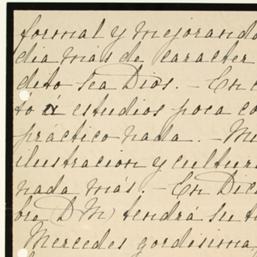 formal y mejorando
dia mas de caracter
dito sea Dios. - En c
to a estudios poca co
práctico nada. - Mu
ilustracion y cultura
nada más. - En Dic
bre D. M.) tendrá su t
Mercedes gordisima,